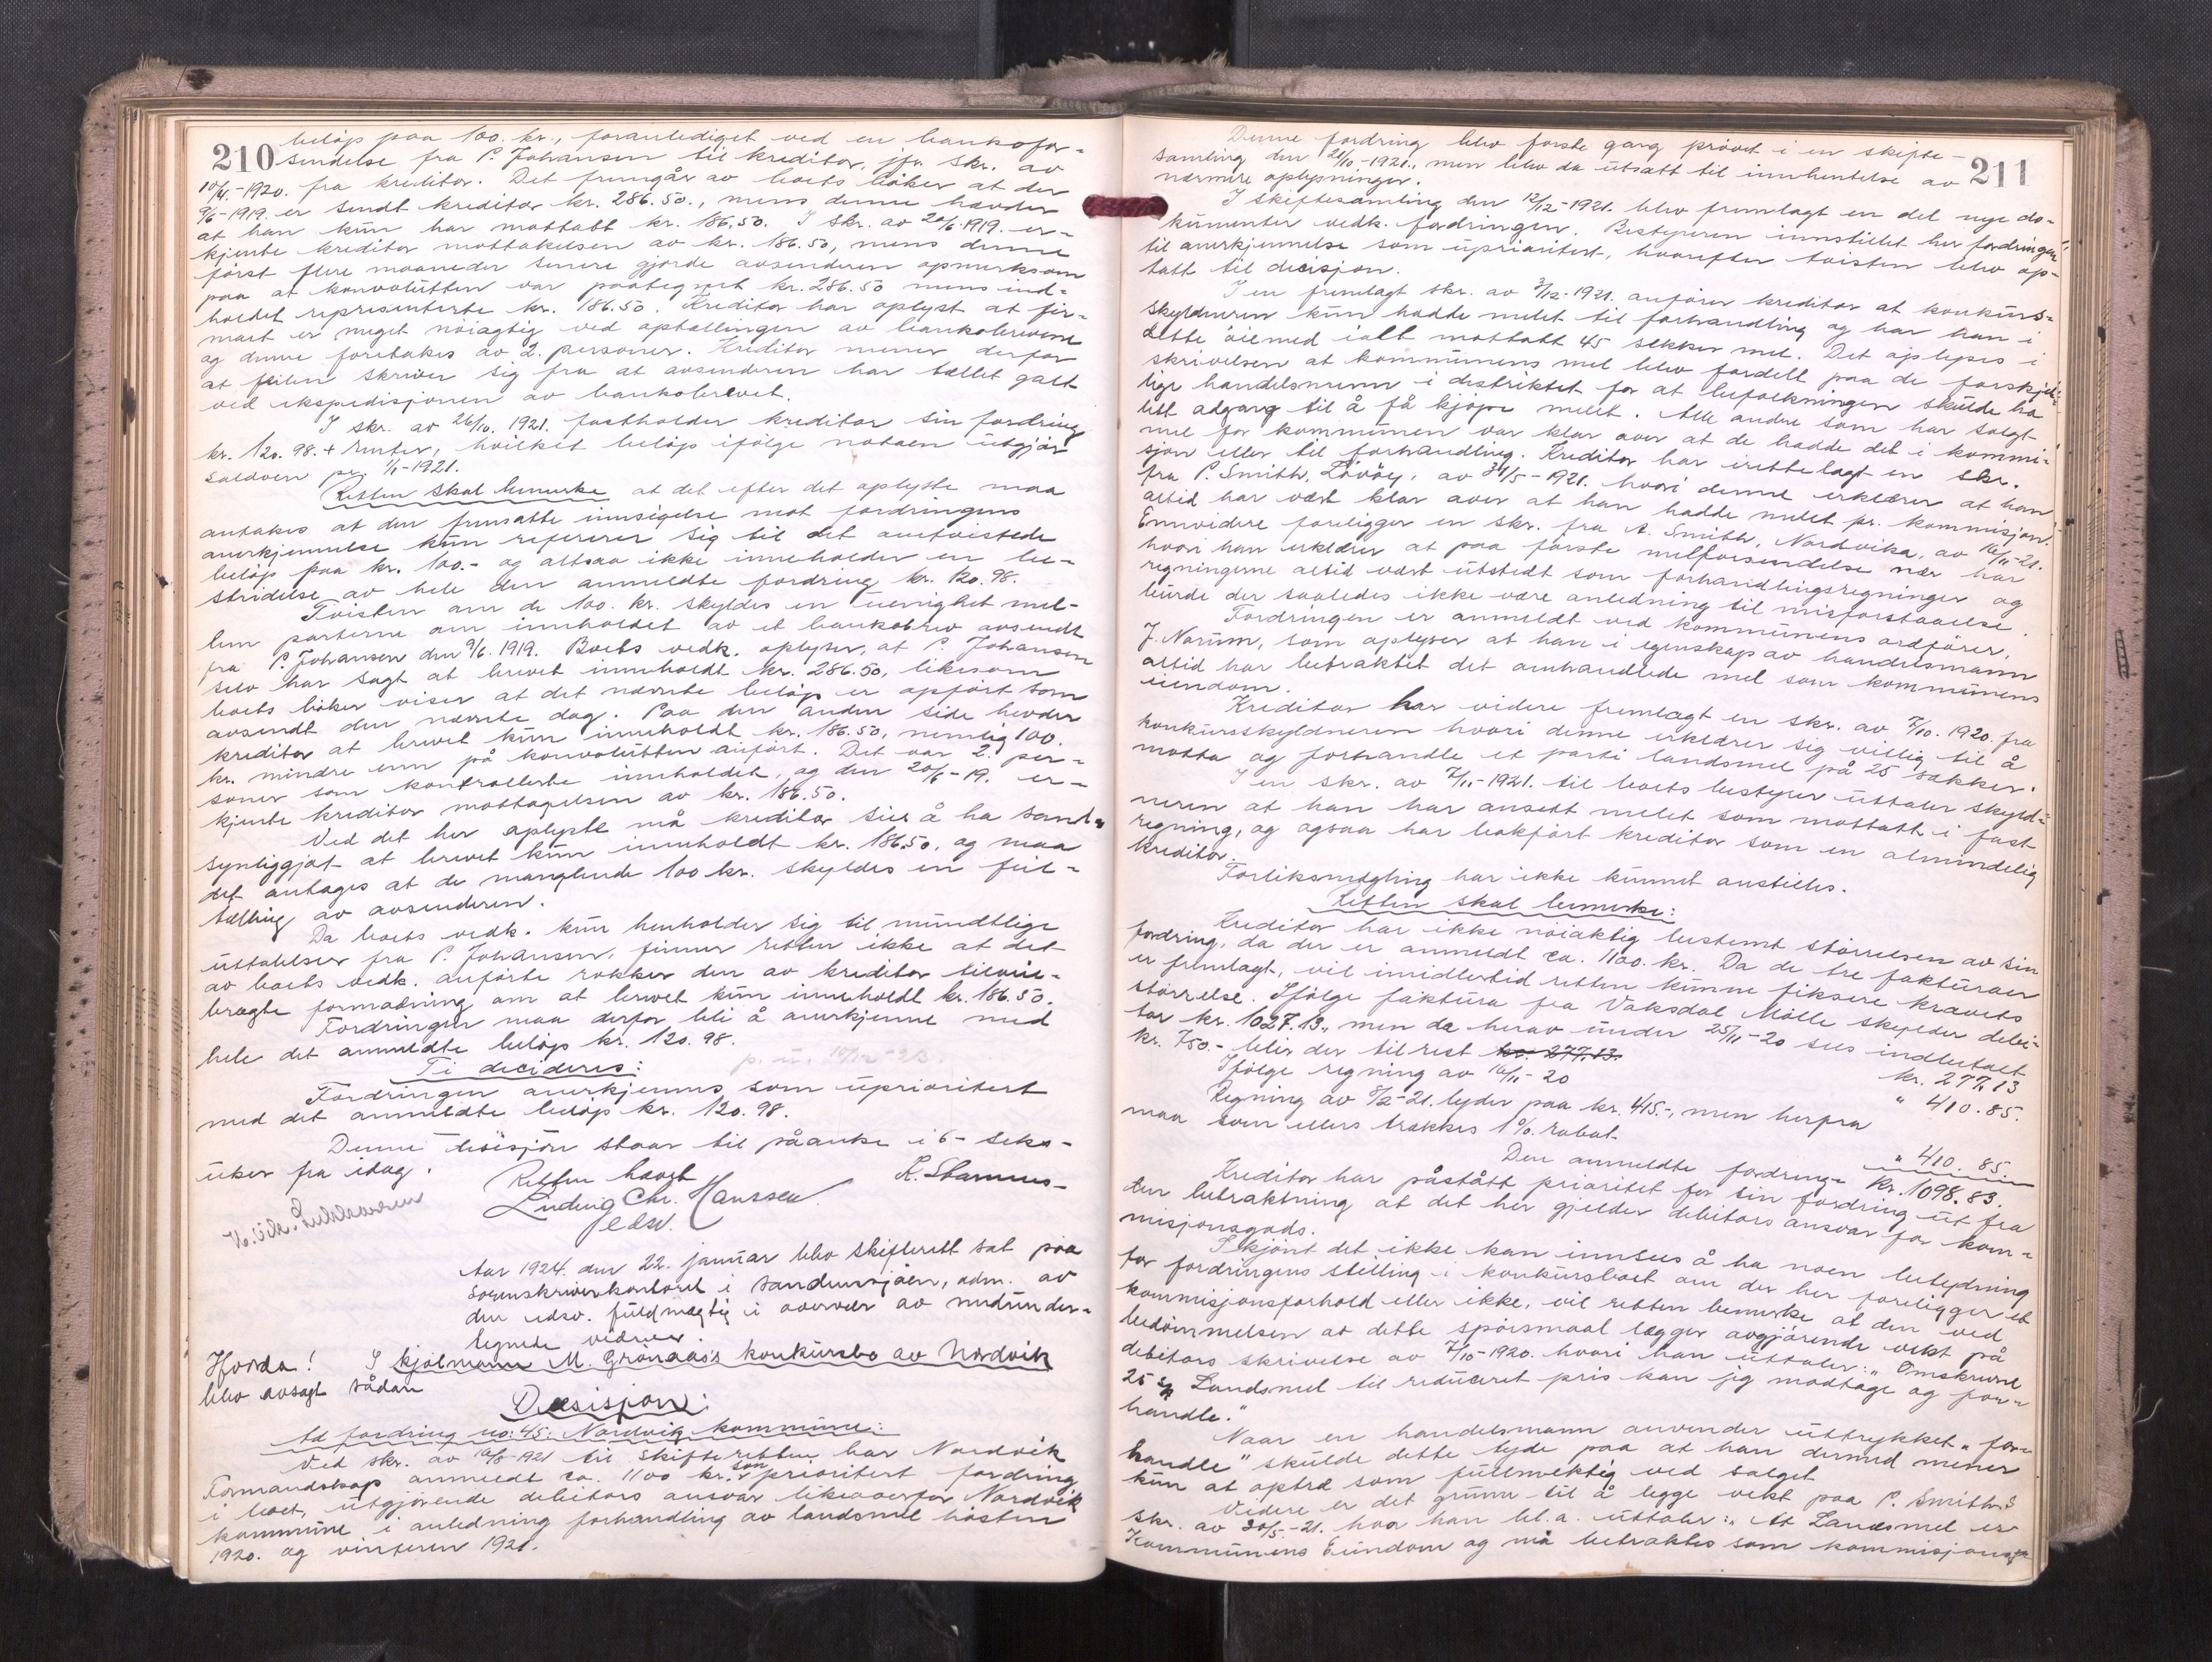 210
beløp paa 100. kr., foranlediget ved en bankofor-
sendelse fra P. Johansen til kreditor, jfr. skr. av
10/4.-1920. fra kreditor. Det fremgår av boets bøker at der
9/6-1919. er sendt kreditor kr. 286.50., mens denne hævder
at han kun har mottatt kr. 186.50. I skr. av 20/6.1919. er-
kjente kreditor mottakelsen av kr. 186.50, mens denne
først flere maaneder senere gjorde avsenderen opmerksom
paa at konvolutten var paategnet kr. 286.50 mens ind-
holdet representerte kr. 186.50. Kreditor har oplyst at fir-
maet er meget nøiagtig ved optællingen av bankobrevene
og denne foretakes av 2. personer. Kreditor mener derfor
at feilen skriver sig fra at avsenderen har tællet galt
ved ekspedisjonen av bankobrevet.
I skr. av 26/10. 1921. fastholder kreditor sin fordring
kr. 120.98. + renter, hvilket beløp ifølge notaen utgjør
saldoen pr. 1/1-1921.
Retten skal bemerke at det efter det oplyste maa
antakes at den fremsatte innsigelse mot fordringens
anerkjennelse kun refererer sig til det omtvistede
beløp paa kr. 100.- og altsaa ikke inneholder en be-
stridelse av hele den anmeldte fordring kr. 120.98.
Tvisten om de 100. kr. skyldes en uenighet mel-
lem parterne om innholdet av et bankobrev avsendt
fra P. Johansen den 9/6. 1919. Boets vedk. oplyser, at P. Johansen
selv har sagt at brevet inneholdt kr. 286.50, likesom
boets bøker viser at det nævnte beløp er opført som
avsendt den nævnte dag. Paa den anden side hevder
kreditor at brevet kun inneholdt kr. 186.50, nemlig 100.
kr. mindre enn på konvolutten anført. Det var 2. per-
soner som kontrollerte innholdet, og den 20/6-19. er-
kjente kreditor mottagelsen av kr. 186.50.
Ved det her oplyste må kreditor sies å ha sand-
synliggjøt at brevet kun inneholdt kr. 186.50, og maa
det antages at de manglende 100 kr. skyldes en feil-
tælling av avsenderen.
Da boets vedk. kun henholder sig til mundtlige
uttalelser fra P. Johansen, finner retten ikke at det
av boets vedk. anførte rokker den av kreditor tilveie-
bragte formodning om at brevet kun inneholdt kr. 186.50.
Fordringen maa derfor bli å anerkjenne med
hele det anmeldte beløp kr. 120.98.
p. u. 10/12-23.
Ti decideres:
Fordringen anerkjennes som uprioritert
med det anmeldte beløp kr. 120.98.
Denne desisjon staar til påanke i 6- seks-
uker fra idag.
Retten hævet
Ludvig Chr. Hanssen
edsv.
Aar 1924. den 22. januar blev skifterett sat paa
sorenskriverkontoret i Sandnessjøen, adm. av
den edsv. fuldmegtig i overvær av nedunder-
tegnede vidner.
Hvorda! I kjølmann M. Grönaas's konkursbo av Nordvik
blev avsagt sådan
Desisjon:
Ad fordring no: 45: Nordvik kommune:
Ved skr. av 16/8-1921 til skifteretten har Nordvik
Formandskap anmeldt ca. 1100 kr. som prioritert fordring
i boet, utgjørende debitors ansvar likeoverfor Nordvik
kommune i anledning forhandling av landsmel høsten
1920. og vinteren 1921.
211
Denne fordring blev første gang prøvet i en skifte-
samling den 21/10-1921., men blev da utsatt til innhentelse av
nærmere oplysninger.
I skiftesamling den 12/12-1921. blev fremlagt en del nye do-
kumenter vedk. fordringen. Bestyreren innstillet her fordringen
til anerkjennelse som uprioritert, hvorefter tvisten blev op-
tatt til decisjon.
I en fremlagt skr. av 7/12-1921. anfører kreditor at konkurs-
skyldneren kun hadde melet til forhandling og har han i
dette øiemed ialt mottatt 45 sekker mel. Det oplyses i
skrivelsen at kommunens mel blev fordelt paa de forskjel-
lige handelsmenn i distriktet for at befolkningen skulde ha
lett adgang til å få kjøpe melet. Alle andre som har solgt
mel for kommunen var klar over at de hadde det i kommi-
sjon eller til forhandling. Kreditor har irettelagt en skr.
fra P. Smith, Lövöy, av 31/5-1921. hvori denne erklærer at han
altid har vært klar over at han hadde melet pr. kommisjon.
Ennvidere foreligger en skr. fra A. Smith, Nordvika, av 16/11-21.
hvori han erklærer at paa første melforsendelse nær har
regningerne altid vært utstedt som forhandlingsregninger og
burde der saaledes ikke være anledning til misforstaaelse.
Fordringen er anmeldt ved kommunens ordfører,
J. Norum, som oplyser at han i egenskap av handelsmann
altid har betraktet det omhandlede mel som kommunens
eiendom.
Kreditor har videre fremlagt en skr. av 7/10. 1920. fra
konkursskyldneren hvori denne erklærer sig villig til å
motta og forhandle et parti landsmel på 25 sækker.
I en skr. av 7/11-1921. til boets bestyrer uttaler skyld-
neren at han har ansett melet som mottatt i fast
regning, og ogsaa har bokført kreditor som en almindelig
kreditor.
Forliksmegling har ikke kunnet anstilles.
Retten skal bemerke:
Kreditor har ikke nøiaktig bestemt størrelsen av sin
fordring, da der er anmeldt ca. 1100. kr. Da de tre fakturaer
er fremlagt, vil imidlertid retten kunne fiksere kravets
størrelse. Ifølge faktura fra Vaksdal Mølle skylder debi-
tor kr. 1027.13., men da herav under 25/11-20 sees indbetalt
kr. 750.- blir der til rest kr. 277.13. kr. 277.13
Ifølge regning av 16/11-20 " 410.85.
Regning av 8/2-21. lyder paa kr. 415.-, men herfra
maa som ellers trækkes 1% rabat. " 410.85
Den anmeldte fordring = kr. 1098.83.
Kreditor har påstått prioritet for sin fordring ut fra
den betraktning at det her gjelder debitors ansvar for kom-
misjonsgods.
Skjønt det ikke kan innsees å ha noen betydning
for fordringens stilling i konkursboet om der her foreligger et
kommisjonsforhold eller ikke, vil retten bemerke at den ved
bedømmelsen av dette spørsmaal lægger avgjørende vekt på
debitors skrivelse av 7/10-1920. hvori han uttaler: "Omskrevne
25 sk Landsmel til reduceret pris kan jeg modtage og for-
handle."
Naar en handelsmann anvender uttrykket "for-
handle" skulde dette tyde paa at han dermed mener
kun at optre som fullmektig ved salget.
Videre er det grunn til å legge vekt paa P. Smith's
skr. av 30/5.-21. hvor han bl.a. uttaler: "At Landsmel er
Kommunens Eiendom og må betraktes som kommisjons